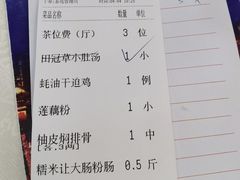 菜品名称 数量 单位
茶位费（厅） 3 位
田冠草水肚汤 1 小
蚝油干迫鸡 1 例
莲藕粉 1 小
柚皮焖排骨 1 中
糯米让大肠粉肠 0.5 斤